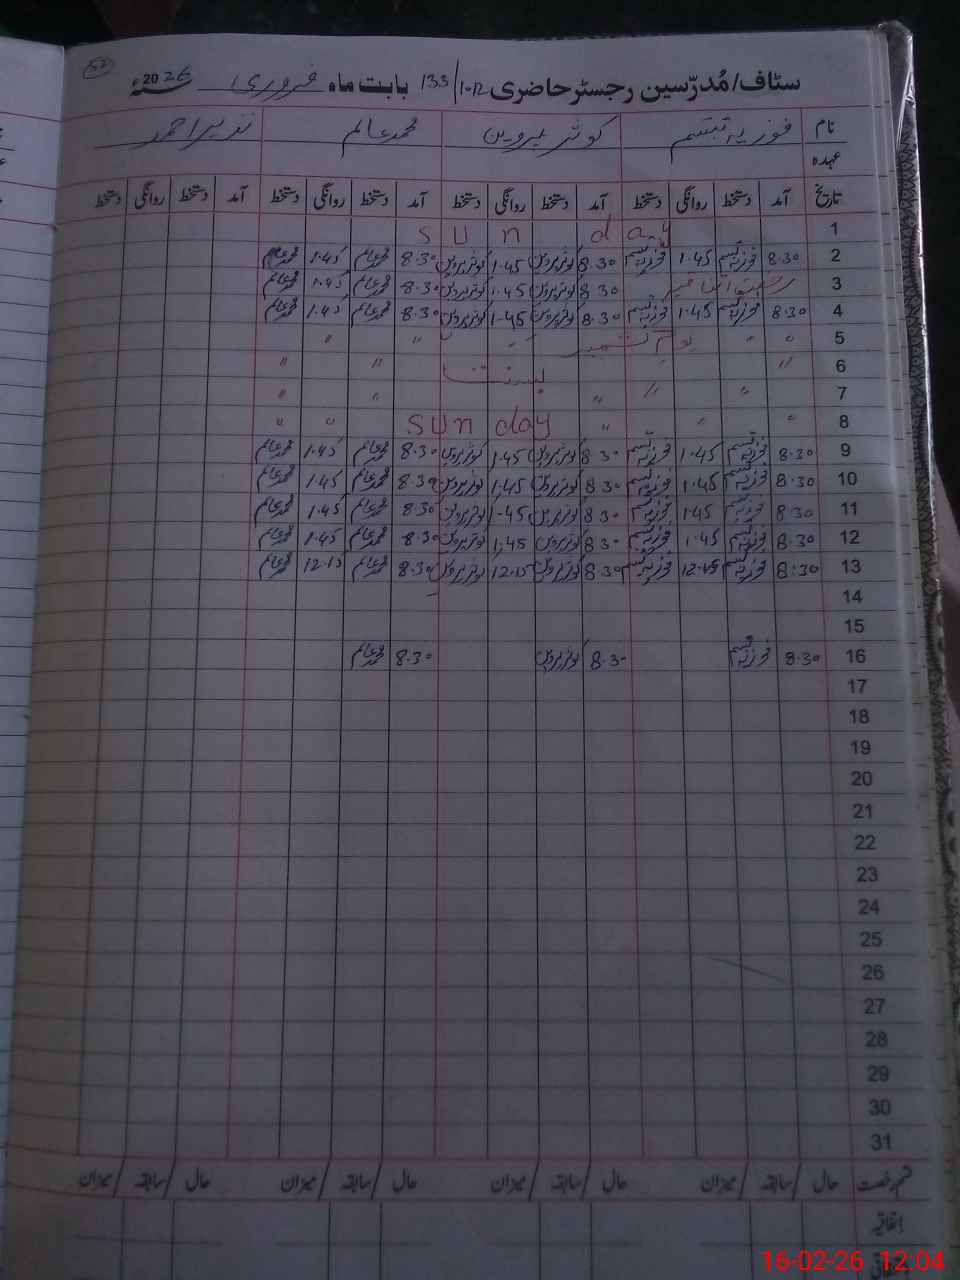 52
سٹاف/مُدرّسین رجسٹرحاضری 133/10R بابت ماہ فروری سنہ 2026ء
نام فوزیہ تبسم کوثر پروین محمد عالم نذیر احمد
عہدہ
تاریخ آمد دستخط روانگی دستخط آمد دستخط روانگی دستخط آمد دستخط روانگی دستخط آمد دستخط روانگی دستخط
1 Sunday
2 8.30 فوزیہ تبسم 1.45 فوزیہ تبسم 8.30 کوثر پروین 1.45 کوثر پروین 8.30 محمد عالم 1.45 محمد عالم
3 8.30 کوثر پروین 1.45 کوثر پروین 8.30 محمد عالم 1.45 محمد عالم
4 8.30 فوزیہ تبسم 1.45 فوزیہ تبسم 8.30 کوثر پروین 1.45 کوثر پروین 8.30 محمد عالم 1.45 محمد عالم
5 " " یوم کشمیر " "
6 " بسنت " "
7 " " " " "
8 " " " Sunday " "
9 8.30 فوزیہ تبسم 1.45 فوزیہ تبسم 8.30 کوثر پروین 1.45 کوثر پروین 8.30 محمد عالم 1.45 محمد عالم
10 8.30 فوزیہ تبسم 1.45 فوزیہ تبسم 8.30 کوثر پروین 1.45 کوثر پروین 8.30 محمد عالم 1.45 محمد عالم
11 8.30 فوزیہ تبسم 1.45 فوزیہ تبسم 8.30 کوثر پروین 1.45 کوثر پروین 8.30 محمد عالم 1.45 محمد عالم
12 8.30 فوزیہ تبسم 1.45 فوزیہ تبسم 8.30 کوثر پروین 1.45 کوثر پروین 8.30 محمد عالم 1.45 محمد عالم
13 8:30 فوزیہ تبسم 12.15 فوزیہ تبسم 8.30 کوثر پروین 12.15 کوثر پروین 8.30 محمد عالم 12.15 محمد عالم
14
15
16 8.30 فوزیہ تبسم 8.30 کوثر پروین 8.30 محمد عالم
17
18
19
20
21
22
23
24
25
26
27
28
29
30
31
قسم رخصت حال / سابقہ / میزان حال / سابقہ / میزان حال / سابقہ / میزان حال / سابقہ / میزان
اتفاقیہ
16-02-26 12:04